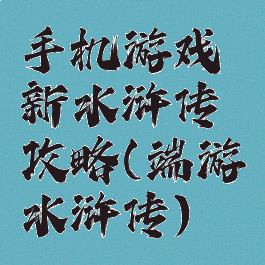 手机游戏
新水浒传
攻略(端游
水浒传)